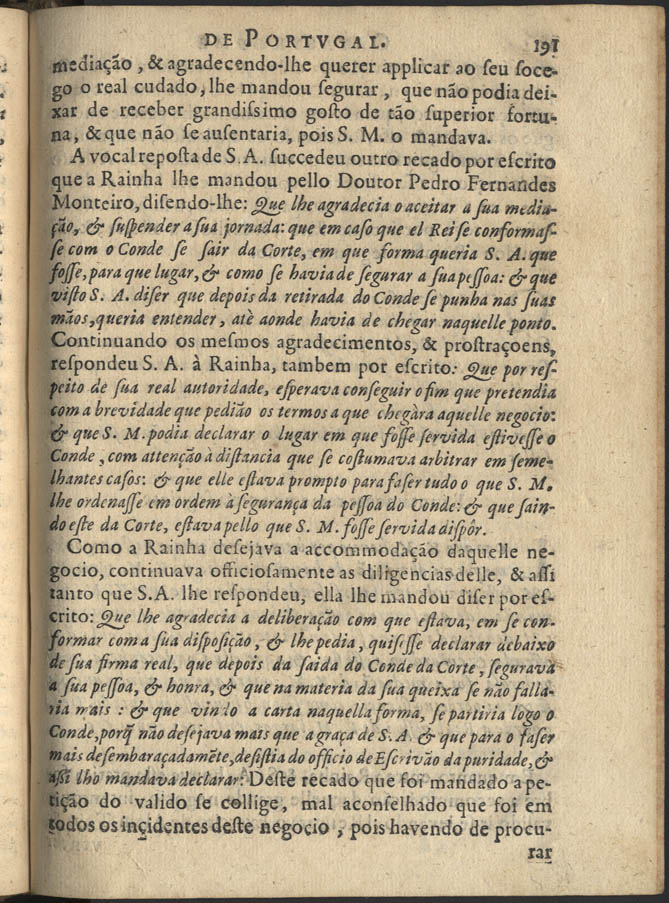 DE PORTVGAL. 191
mediação, & agradecendo-lhe querer applicar ao ſeu ſoce-
go o real cudado, lhe mandou ſegurar, que não podia dei-
xar de receber grandiſſimo goſto de tão ſuperior fortu-
na, & que não ſe auſentaria, pois S. M. o mandava.
A vocal repoſta de S. A. ſuccedeu outro recado por eſcrito
que a Rainha lhe mandou pello Doutor Pedro Fernandes
Monteiro, diſendo-lhe: Que lhe agradecia o aceitar a ſua media-
ção, & ſuſpender a ſua jornada: que em caſo que el Rei ſe conformaſ-
ſe com o Conde ſe ſair da Corte, em que forma queria S. A. que
foſſe, para que lugar, & como ſe havia de ſegurar a ſua peſſoa: & que
viſto S. A. diſer que depois da retirada do Conde ſe punha nas ſuas
mãos, queria entender, atè aonde havia de chegar naquelle ponto.
Continuando os meſmos agradecimentos, & proſtraçoens,
reſpondeu S. A. à Rainha, tambem por eſcrito: Que por reſ-
peito de ſua real autoridade, eſperava conſeguir o fim que pretendia
com a brevidade que pedião os termos a que chegàra aquelle negocio:
& que S. M. podia declarar o lugar em que foſſe ſervida eſtiveſſe o
Conde, com attenção à diſtancia que ſe coſtumava arbitrar em ſeme-
lhantes caſos: & que elle eſtava prompto para faſer tudo o que S. M.
lhe ordenaſſe em ordem à ſegurança da peſſoa do Conde: & que ſain-
do eſte da Corte, eſtava pello que S. M. foſſe ſervida diſpôr.
Como a Rainha deſejava a accommodação daquelle ne-
gocio, continuava officioſamente as diligencias delle, & aſſi
tanto que S.A. lhe reſpondeu, ella lhe mandou diſer por eſ-
crito: Que lhe agradecia a deliberação com que eſtava, em ſe con-
formar com a ſua diſpoſição, & lhe pedia, quiſeſſe declarar debaixo
de ſua firma real, que depois da ſaida do Conde da Corte, ſegurava
a ſua peſſoa, & honra, & que na materia da ſua queixa ſe não falla-
ria mais: & que vindo a carta naquella forma, ſe partiria logo o
Conde, porq̃ não deſejava mais que a graça de S. A. & que para o faſer
mais deſembaraçadamẽte, deſiſtia do officio de Eſcrivão da puridade, &
aſſi lho mandava declarar: Deſte recado que foi mandado a pe-
tição do valido ſe collige, mal aconſelhado que foi em
todos os incidentes deſte negocio, pois havendo de procu-
rar